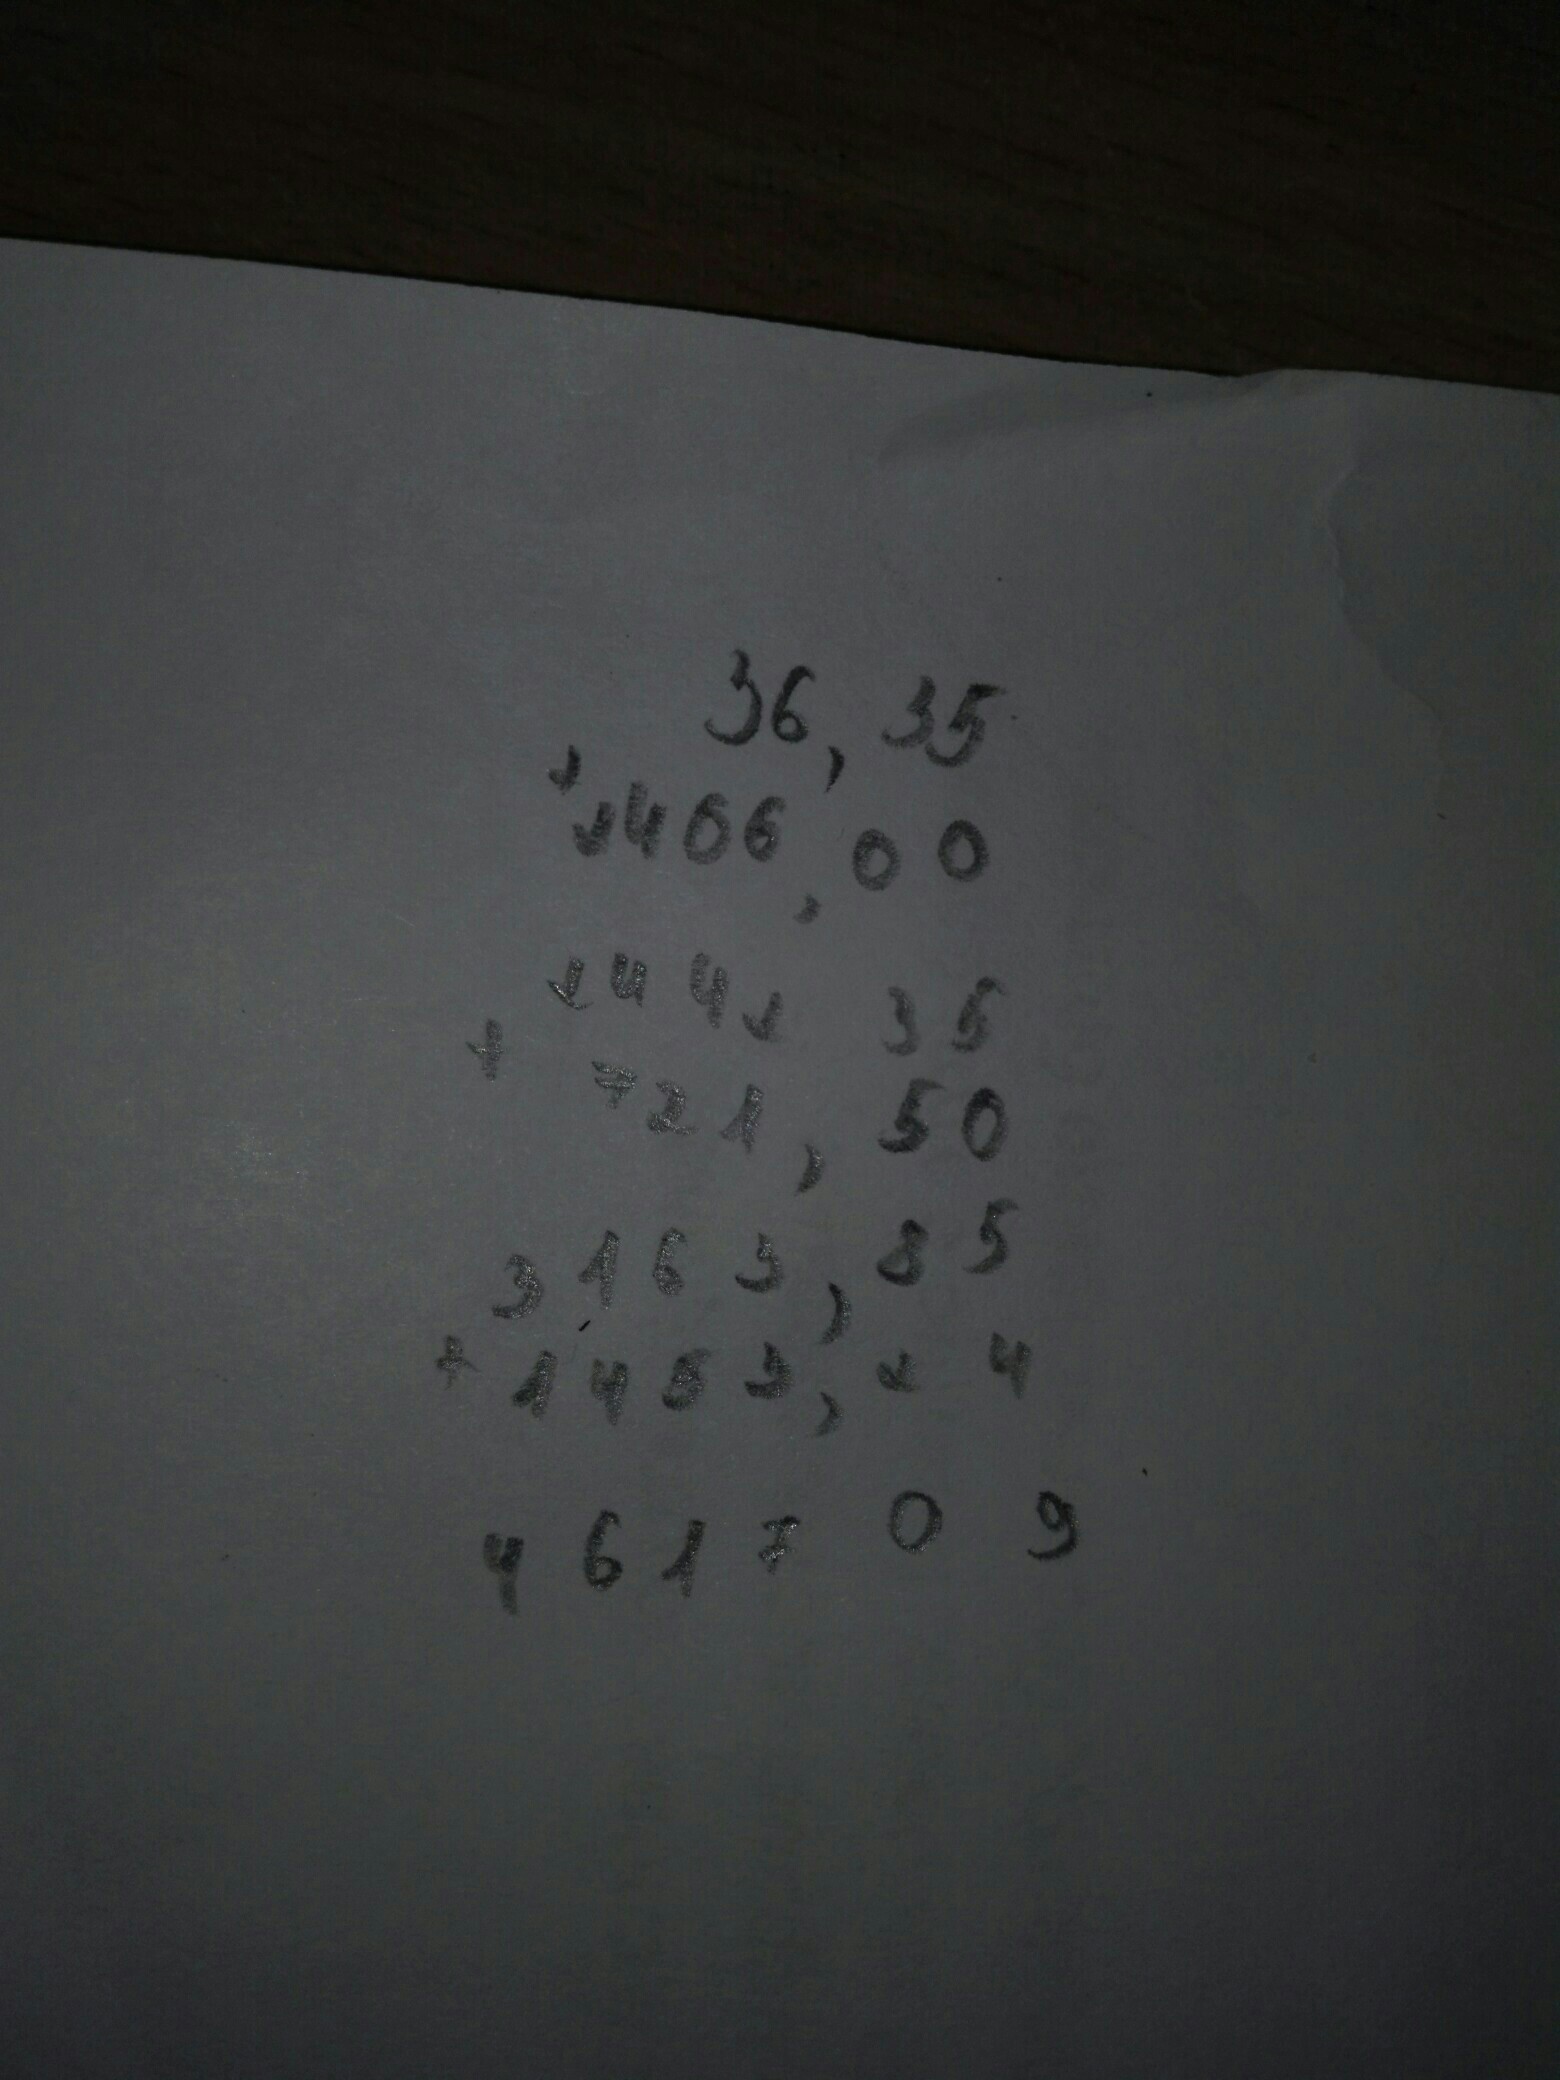 36,35
+
1406,00
,
1441 35
+ 721,50
3163,85
+ 1453,24
461709